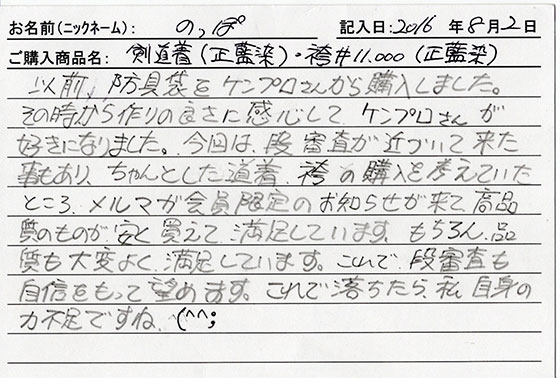 お名前(ニックネーム): のっぽ 記入日: 2016 年 8 月 2 日
ご購入商品名: 剣道着(正藍染)・袴#11.000(正藍染)
以前、防具袋をケンプロさんから購入しました。
その時から作りの良さに感心して、ケンプロさんが
好きになりました。今回は、段審査が近づいて来た
事もあり、ちゃんとした道着、袴の購入を考えていた
ところ、メルマガ会員限定のお知らせが来て、高品
質のものが安く買えて満足しています。もちろん、品
質も大変よく、満足しています。これで、段審査も
自信をもって望めます。これで落ちたら、私自身の
力不足ですね (^^;